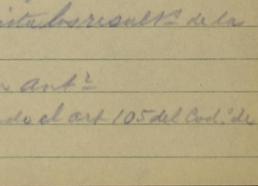 vista los result.os de la
n ant.r
ndo el art 105 del Cod.o de